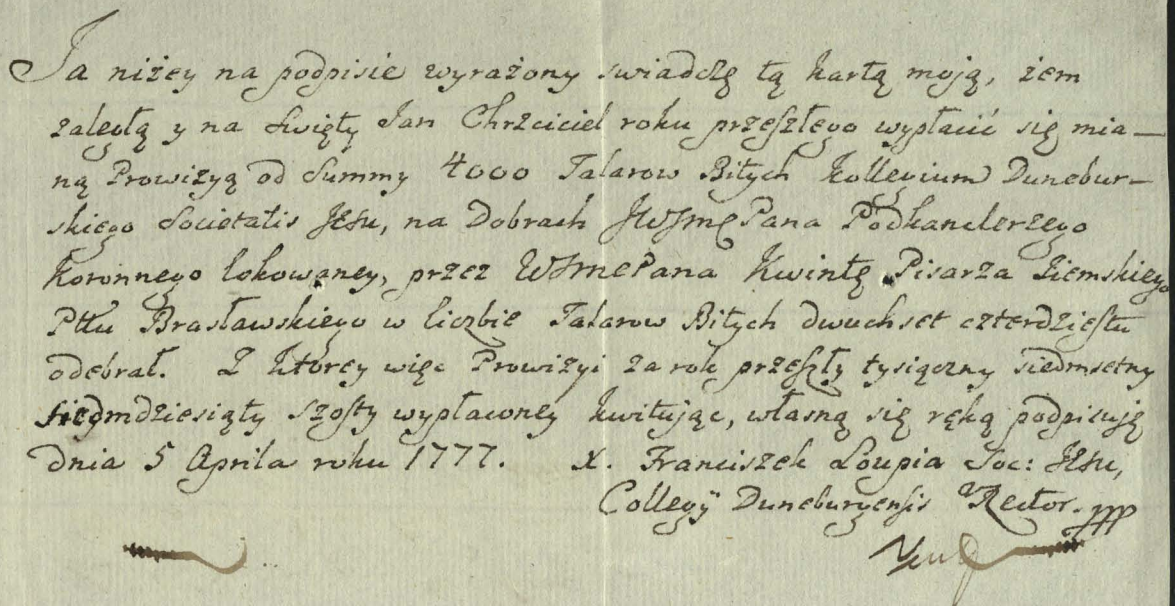 Ja niżey na podpisie wyrażony swiadczę tą kartą moją, żem
zaległą y na Swięty Jan Chrzciciel roku przeszłego wypłacić się mia-
ną Prowizyą od Summy 4000 Talarow Bitych Kollegium Dunebur-
skiego Societatis Jesu, na Dobrach JWJmć Pana Podkanclerzego
Koronnego lokowaney, przez WJmć Pana Kwintę Pisarza Ziemskiego
Pttu Brasławskiego w liczbie Talarow Bitych dwuchset czterdziestu
odebrał. Z Ktorey więc Prowizyi za rok przeszły tysiączny siedmsetny
siedmdziesiąty szosty wypłaconey kwitując, własną się ręką podpisuję
dnia 5 Aprila roku 1777. X. Franciszek Loupia Soc: Jesu,
Collegÿ Duneburgensis Rector.